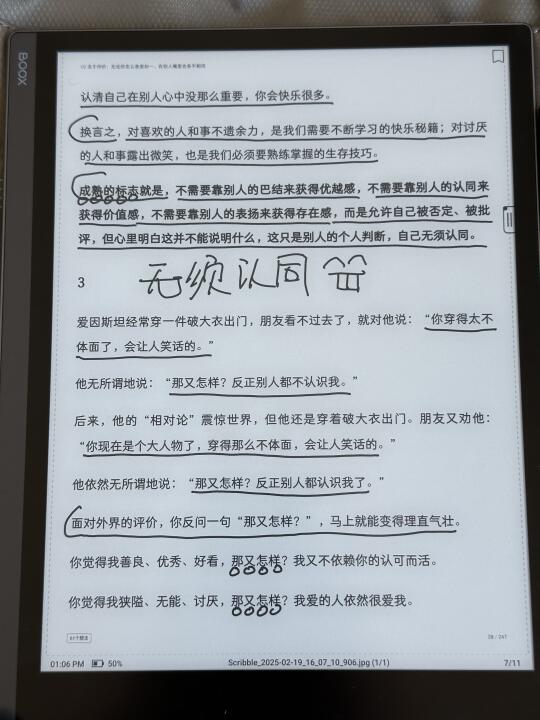 BOOX
认清自己在别人心中没那么重要，你会快乐很多。
换言之，对喜欢的人和事不遗余力，是我们需要不断学习的快乐秘籍；对讨厌
的人和事露出微笑，也是我们必须要熟练掌握的生存技巧。
成熟的标志就是，不需要靠别人的巴结来获得优越感，不需要靠别人的认同来
获得价值感，不需要靠别人的表扬来获得存在感，而是允许自己被否定、被批
评，但心里明白这并不能说明什么，这只是别人的个人判断，自己无须认同。
3 无须认同
爱因斯坦经常穿一件破大衣出门，朋友看不过去了，就对他说：“你穿得太不
体面了，会让人笑话的。”
他无所谓地说：“那又怎样？反正别人都不认识我。”
后来，他的“相对论”震惊世界，但他还是穿着破大衣出门。朋友又劝他：
“你现在是个大人物了，穿得那么不体面，会让人笑话的。”
他依然无所谓地说：“那又怎样？反正别人都认识我了。”
面对外界的评价，你反问一句“那又怎样？”，马上就能变得理直气壮。
你觉得我善良、优秀、好看，那又怎样？我又不依赖你的认可而活。
你觉得我狭隘、无能、讨厌，那又怎样？我爱的人依然很爱我。
61个想法 28 / 247
01:06 PM 50% Scribble_2025-02-19_16_07_10_906.jpg (1/1) 7/11